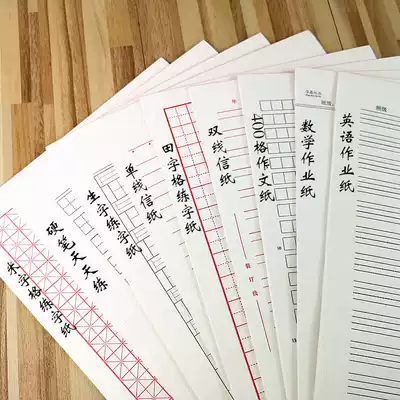 米字格练字纸
硬笔天天练
生字练字纸
单线信纸
田字格练字纸
双线信纸
400格作文纸
数学作业纸
英语作业纸
装订线